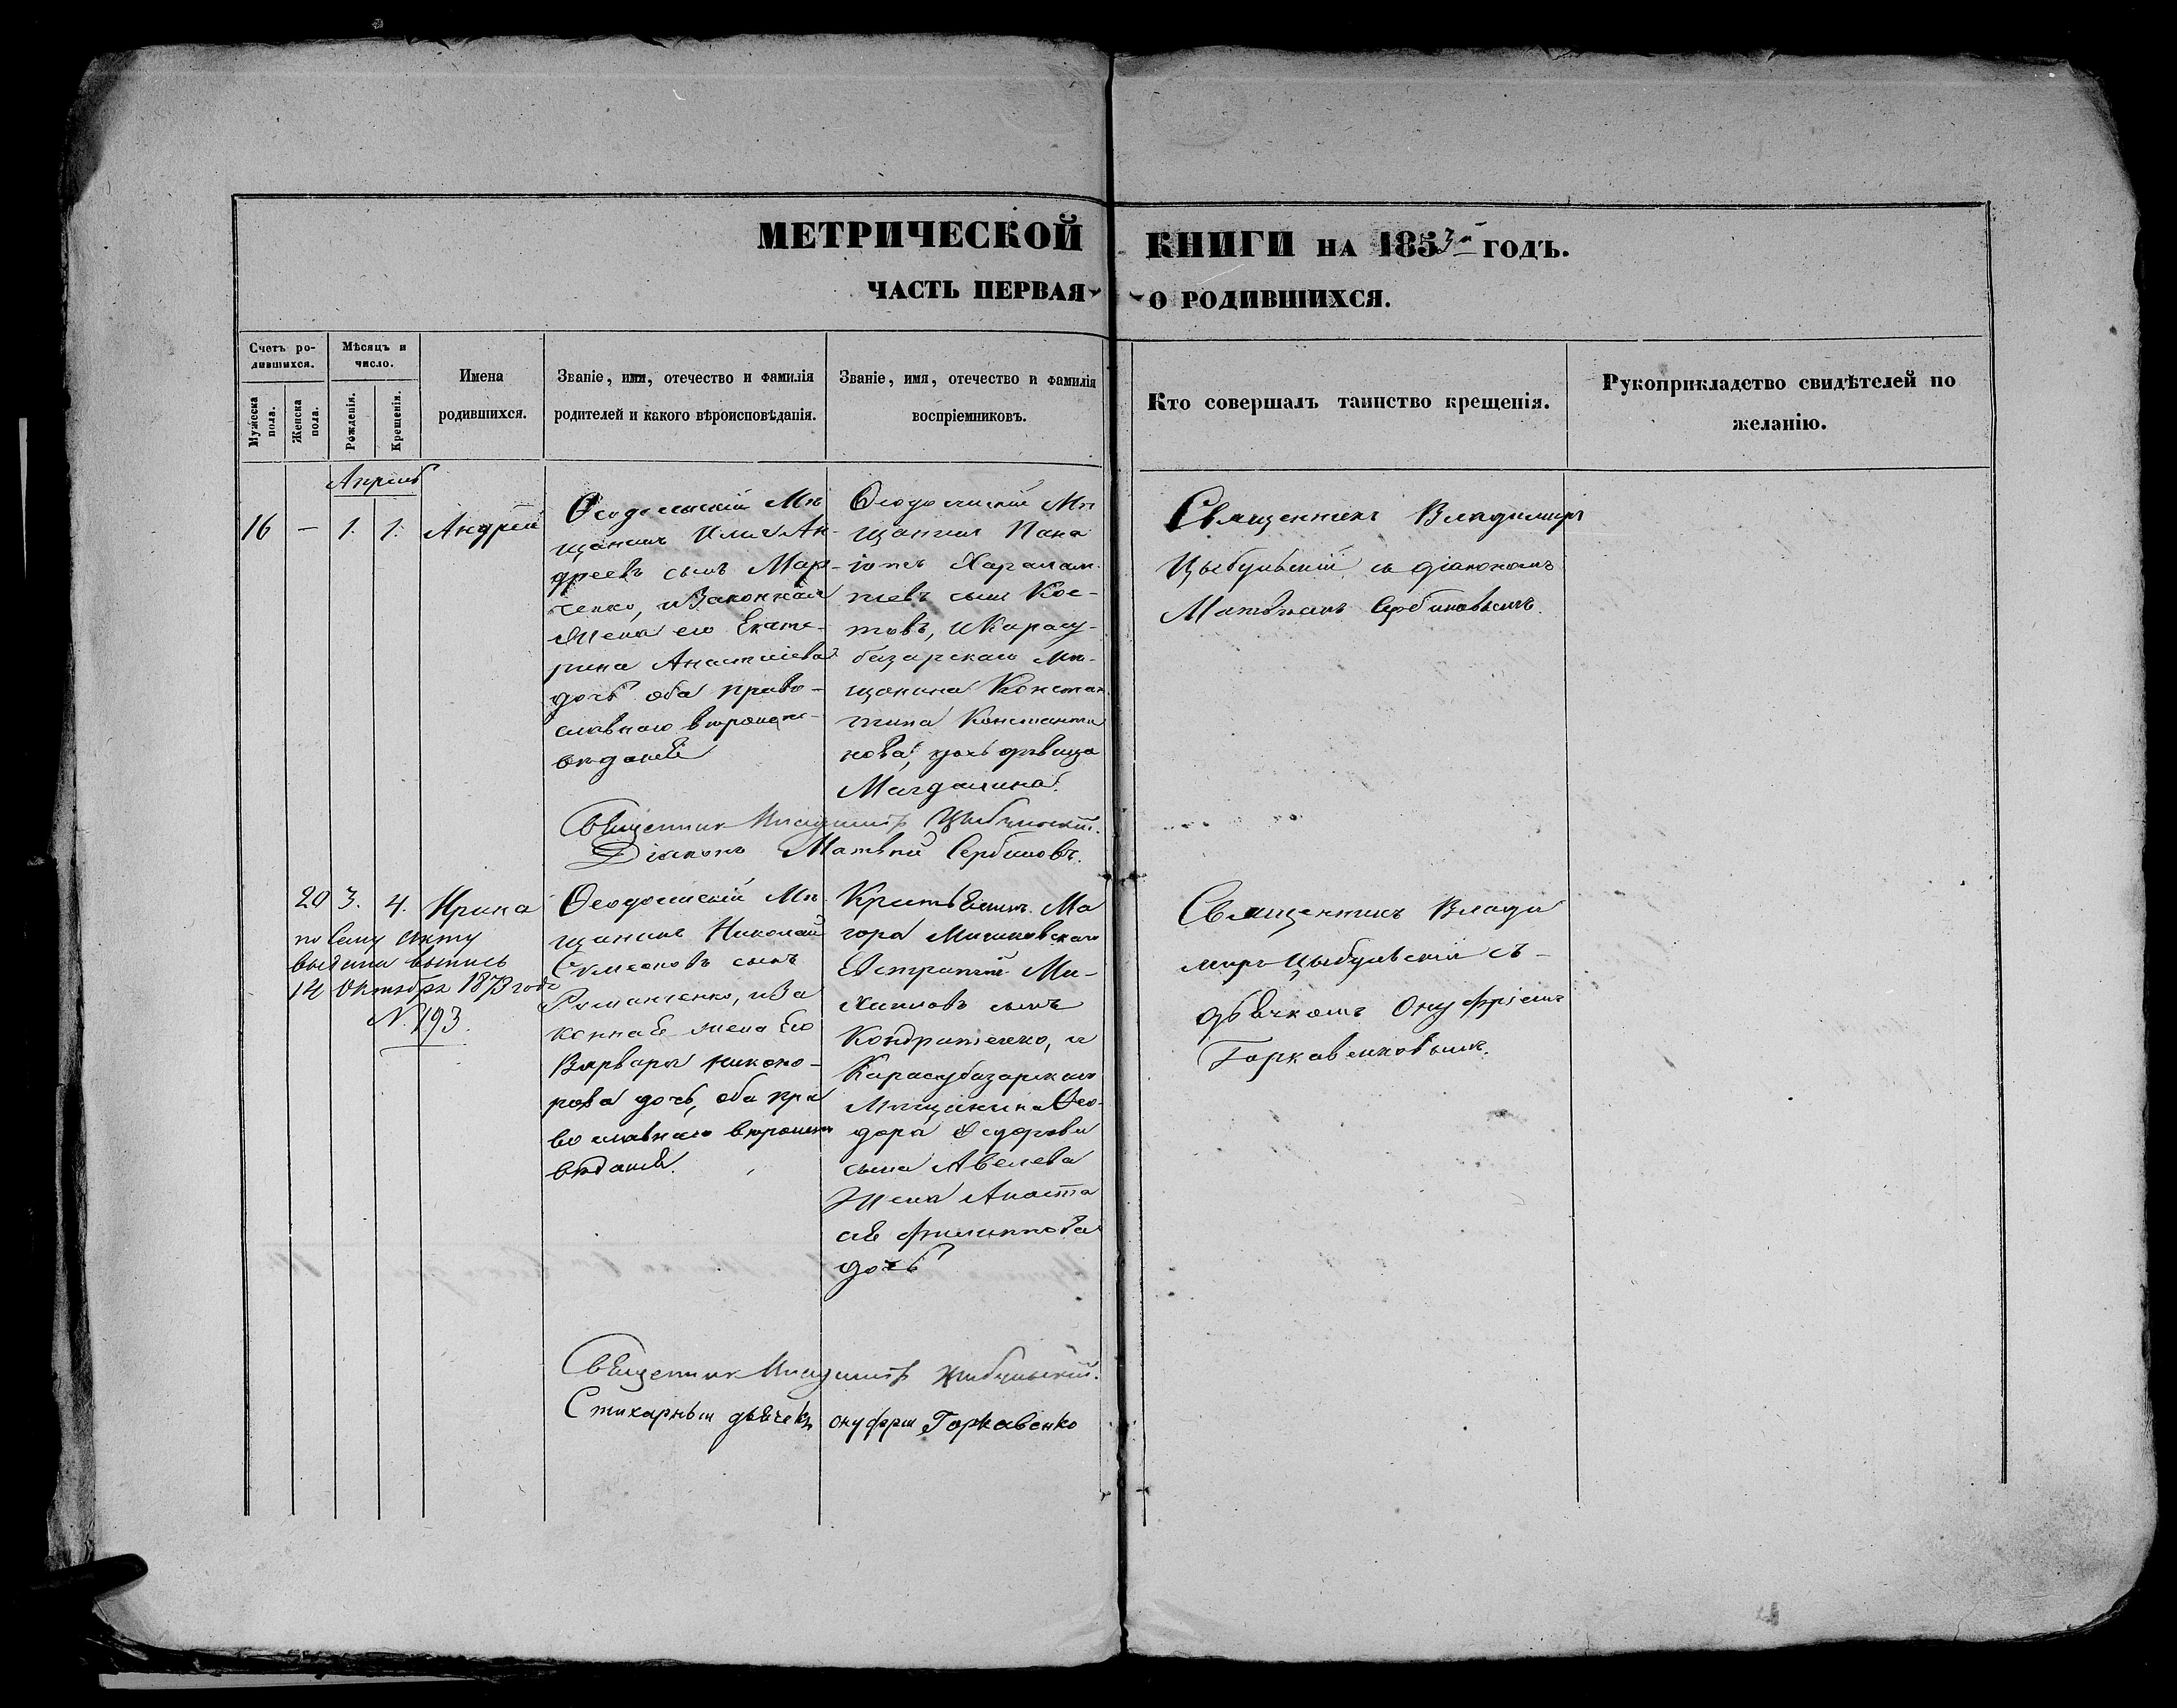 МЕТРИЧЕСКОЙ КНИГИ НА 1853й ГОДЪ.
ЧАСТЬ ПЕРВАЯ О РОДИВШИХСЯ.
Счетъ ро-
дившихся.
Мужеска пола.
Женска пола.
Мѣсяцъ и
число.
Рожденія.
Крещенія.
Имена
родившихся.
Званіе, имя, отечество и фамилія
родителей и какого вѣроисповѣданія.
Званіе, имя, отечество и фамилія
воспріемниковъ.
Кто совершалъ таинство крещенія.
Рукоприкладство свидѣтелей по
желанію.
Апрель
16 — 1. 1. Андрей
Ѳеодосійскій Мѣ
щанинъ Илія Ан-
дреевъ сынъ Мар-
ченко, и Законная
Жена его Екате-
рина Анастасіева
дочь оба право-
славнаго вѣроиспо-
вѣданія
Ѳеодосійскій Мѣ
щанинъ Пана
іотъ Харалам-
піевъ сынъ Кос-
товъ, и Карасу-
базарскаго Мѣ-
щанина Констан
тина Константи
нова, дочь дѣвица
Магдалина.
Священникъ Владимиръ
Цыбульскій съ діакономъ
Матвѣемъ Сербиновымъ.
Священник Владимир Цыбульский.
Діаконъ Матвѣй Сербиновъ.
20 3. 4. Ирина
по сему акту
выдана выпись
14 Октября 1873 года
N. 193.
Ѳеодосійскій Мѣ
щанинъ Николай
Симеоновъ сынъ
Романченко, и За
конная жена Его
Варвара Никоно-
рова дочь, оба пра
вославнаго вѣроиспо
вѣданія.
Маіора
Евстратій Ми-
хаиловъ сынъ
Кондратенко, и
Карасубазарскаго
Мѣщанина Ѳео-
дора Ѳедорова
сына Авелева
Жена Анаста
сія Филиппова
дочь
Священникъ Влади
миръ Цыбульскій съ
дьячкомъ Онуфріемъ
Горкавенковымъ.
Священник Владимир Цыбульский.
Стихарный дьячекъ онуфрий Горкавенко